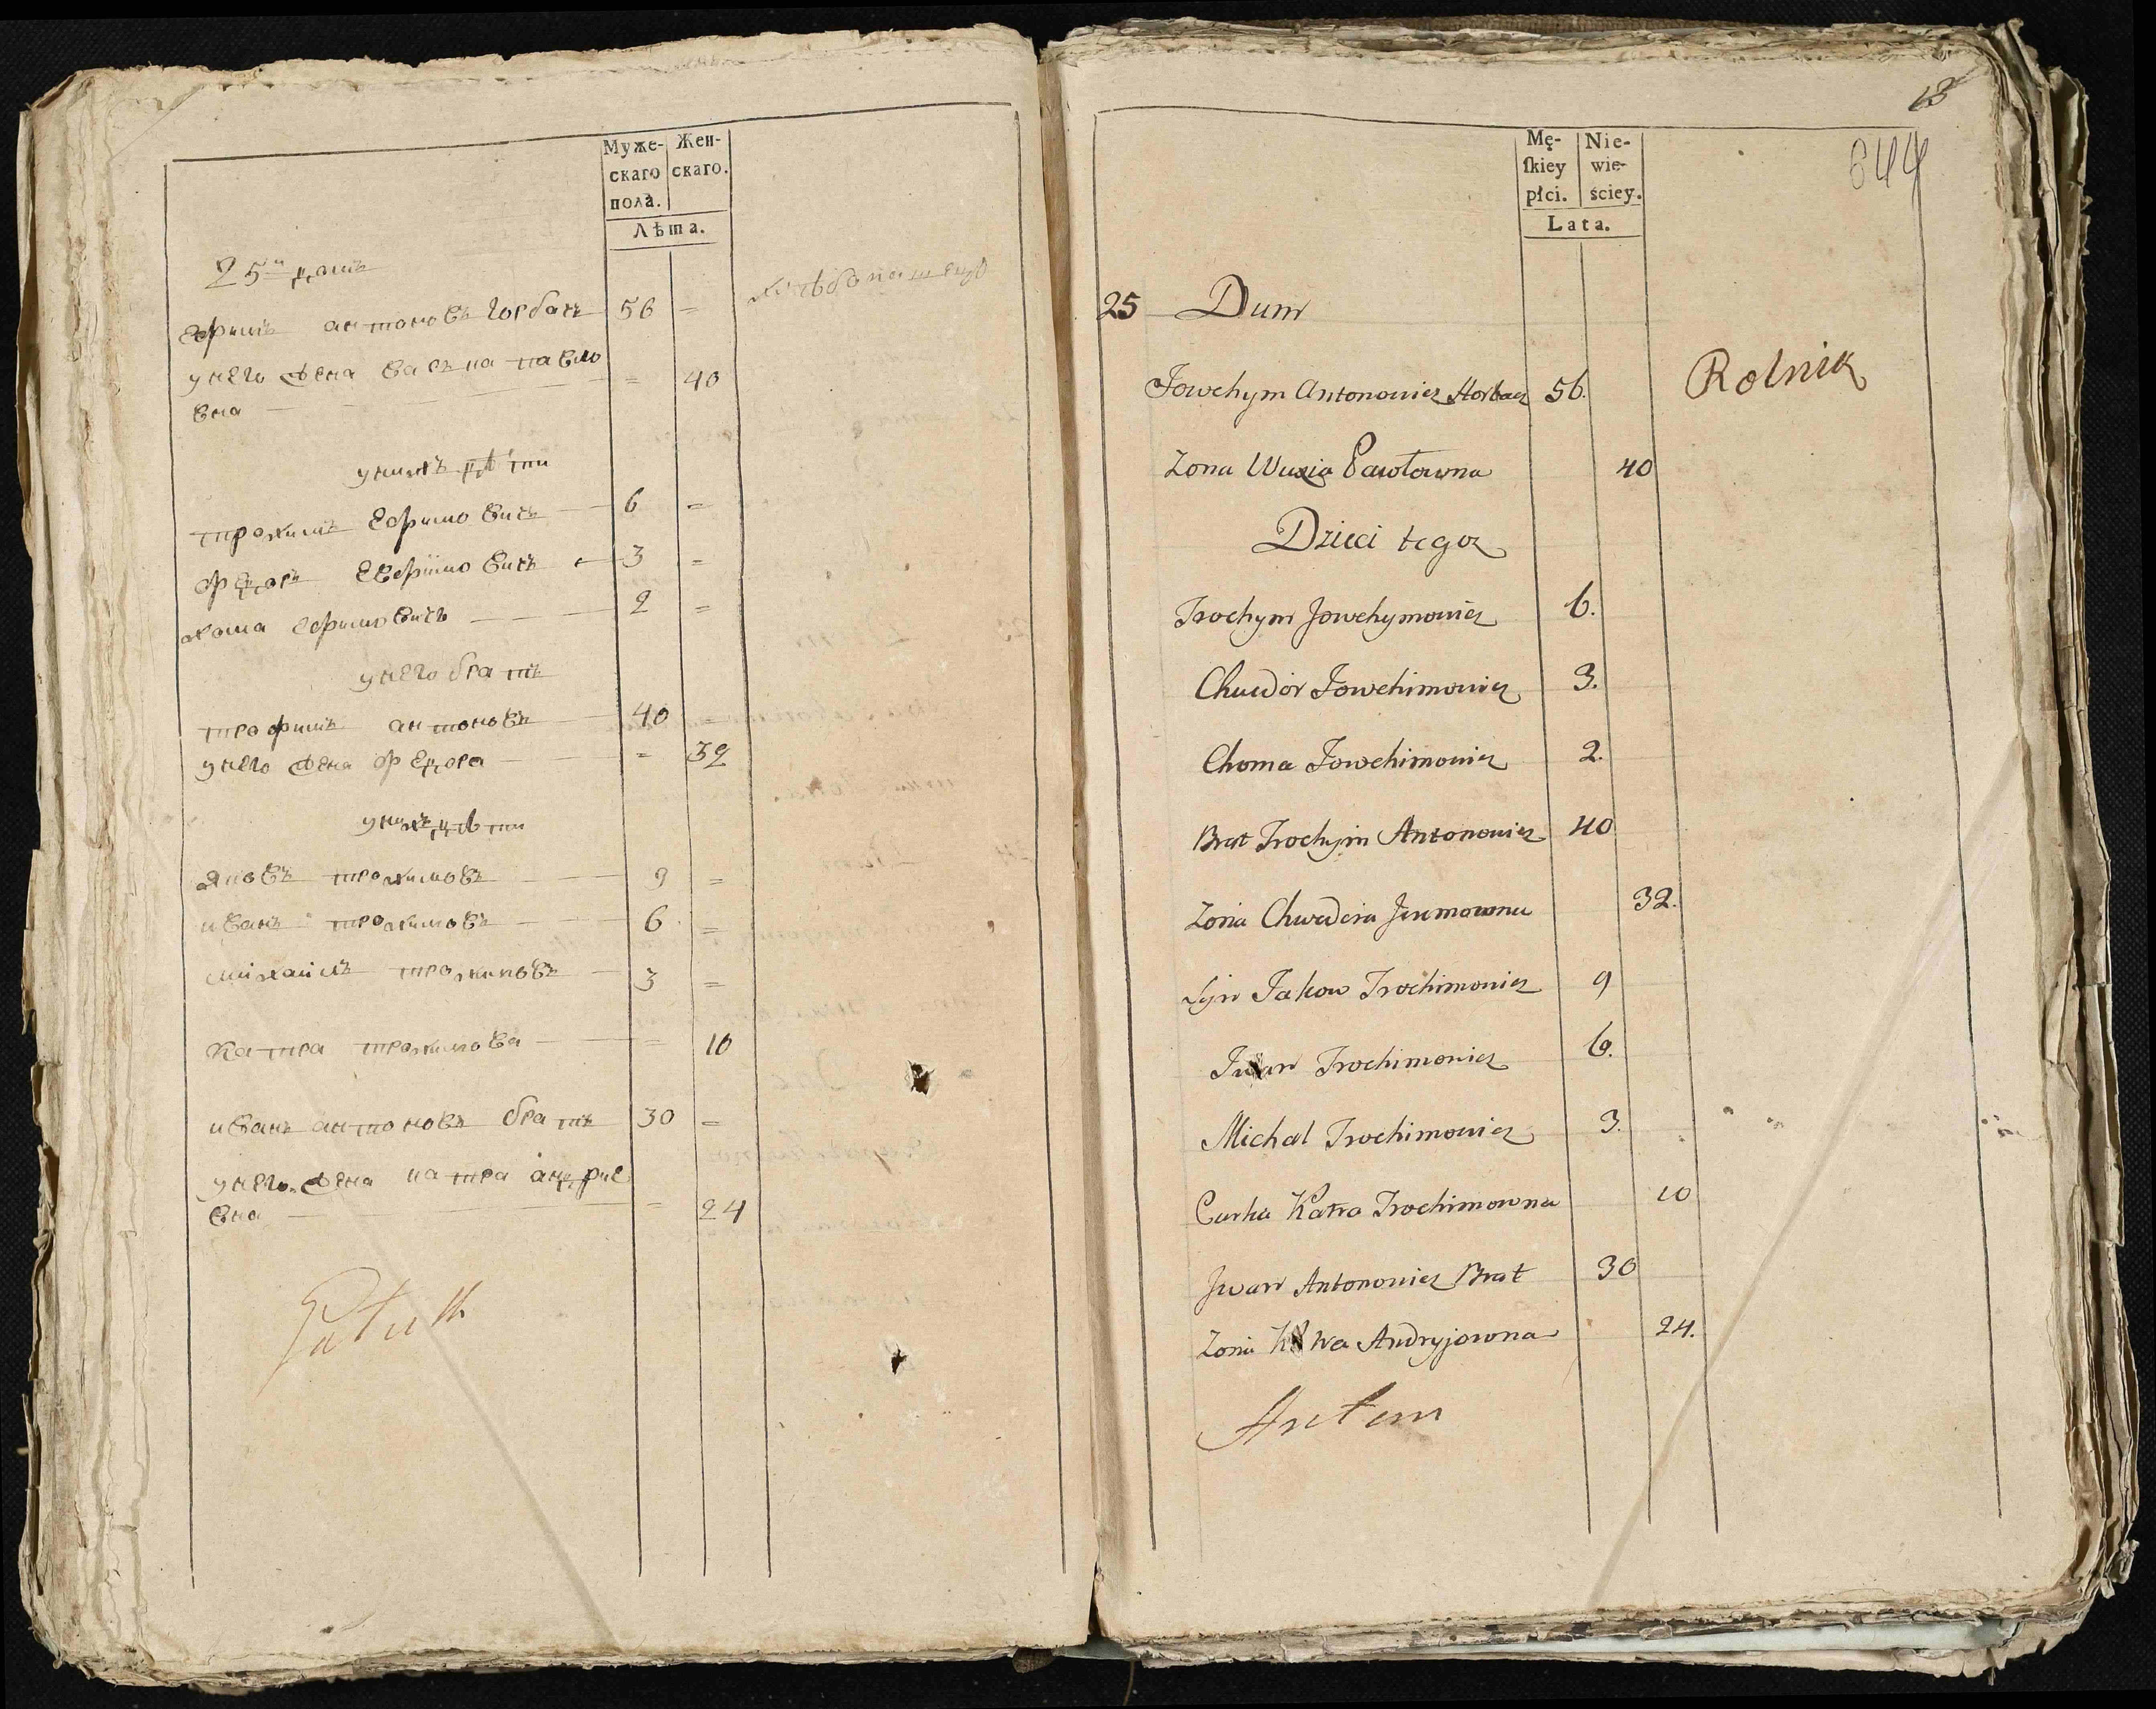 Муже-
скаго
пола.
Жен-
скаго.
Лѣта.
25й домъ
Ефимъ антоновъ Горбачъ 56 =
хлѣбопашецъ
унего жена васька павло
вна = 40
унихъ дѣти
трохимъ Ефимовичъ 6 =
федоръ Евфимовичъ 3 =
хома Ефимовичъ 2 =
унего братъ
трофимъ антоновъ 40 =
унего жена федора = 32
унихъ дѣти
яковъ трохимовъ 9 =
иванъ трохимовъ 6 =
михаилъ трохимовъ 3 =
катра трохимова = 10
иванъ антоновъ братъ 30 =
унего жена катра андрие
вна = 24
13
644
Mę-
skiey
płci.
Nie-
wie-
ściey.
Lata.
25 Dum
Jowchym Antonowicz Horbacz 56. Rolnik
Zona Wasia Pawłowna 40
Dzieci tegoz
Trochym Jowchymowicz 6.
Chwedor Jowchimowicz 3.
Choma Jowchimowicz 2.
Brat Trochym Antonowicz 40
Zona Chwedora 32.
Syn Jakow Trochimowicz 9
Iwan Trochimowicz 6.
Michał Trochimowicz 3.
Curka Katra Trochimowna 10
Jwan Antonowicz Brat 30
Zona Andryjowna 24.